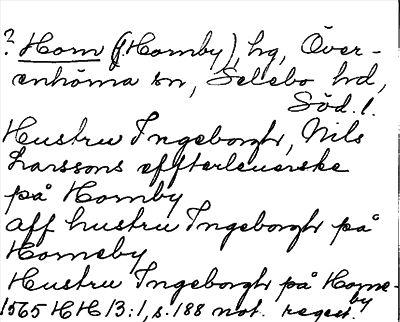 ? Horn (j. Hornby), hg, Över-
enhörna sn, Selebo hd,
Söd. l.
Hustru Ingeborgh, Nils
Larssons effterleuerske
på Hornby
aff hustru Ingeborgh på
Horneby
Hustru Ingeborgh på Horne-
by
1565 HH 13:1, s. 188 not. regest.